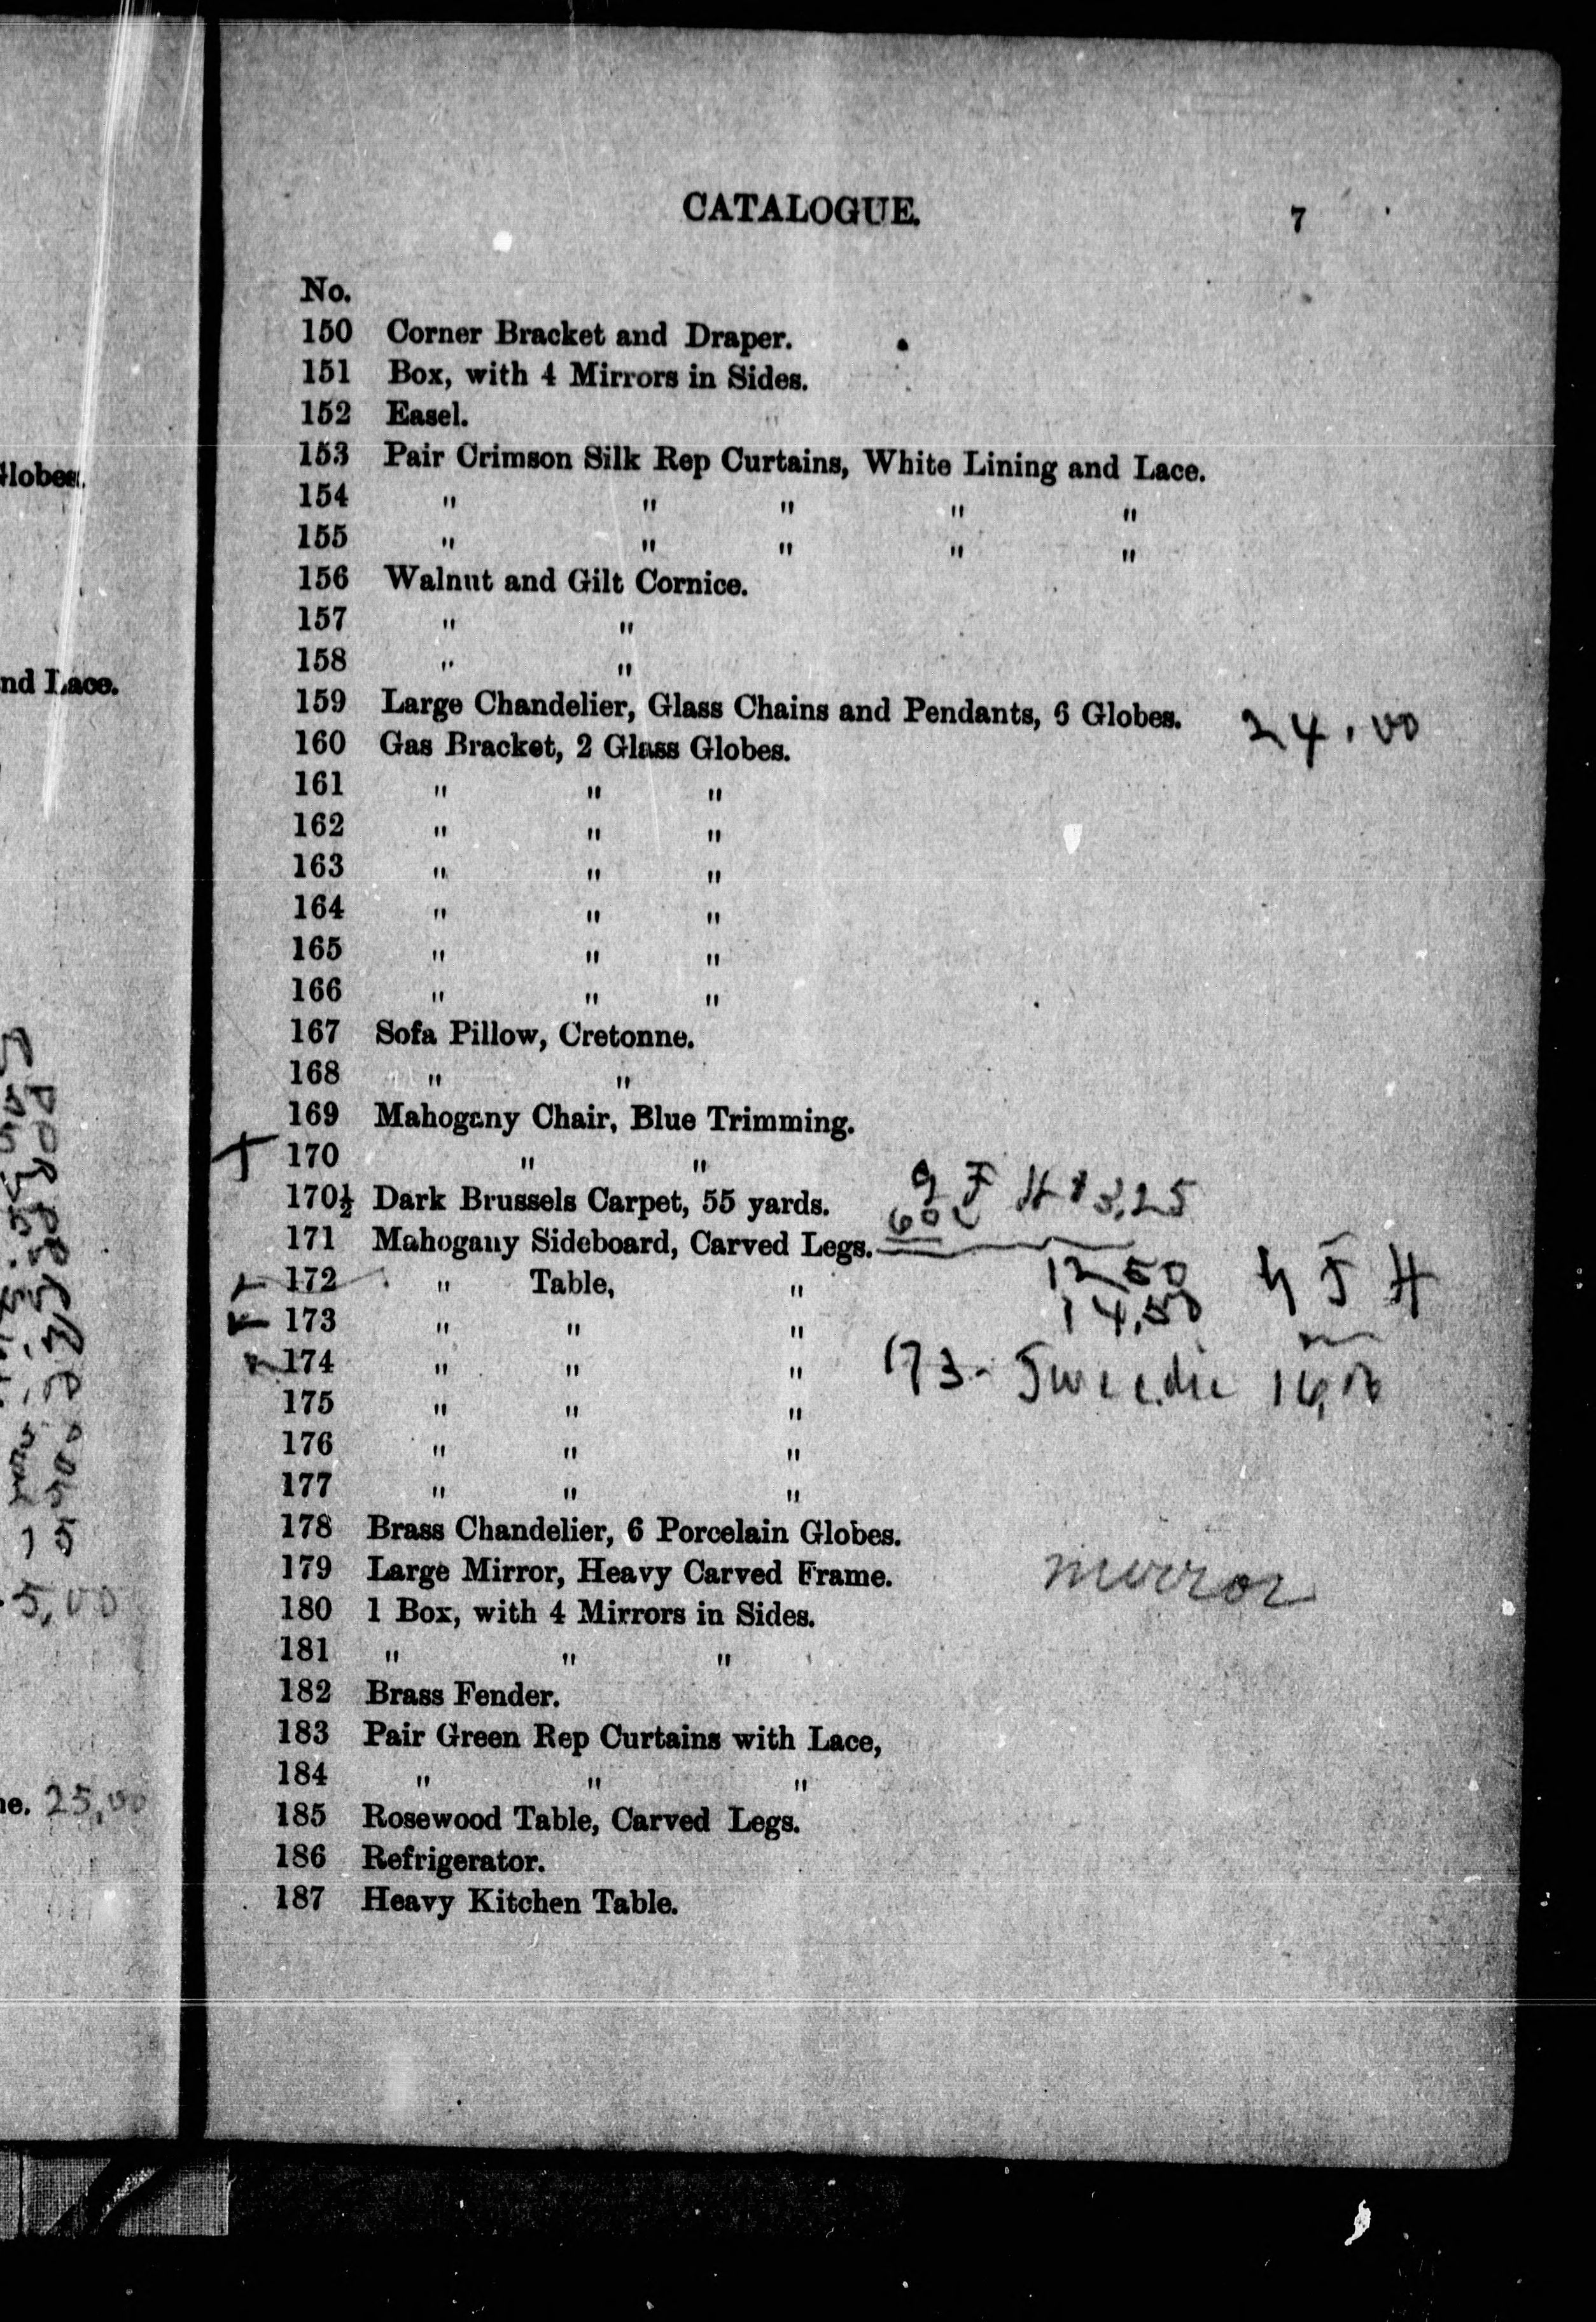 CATALOGUE. 7
No.
150 Corner Bracket and Draper.
151 Box, with 4 Mirrors in Sides.
152 Easel.
153 Pair Crimson Silk Rep Curtains, White Lining and Lace.
154 " " " " "
155 " " " " "
156 Walnut and Gilt Cornice.
157 " "
158 " "
159 Large Chandelier, Glass Chains and Pendants, 6 Globes. 24.00
160 Gas Bracket, 2 Glass Globes.
161 " " "
162 " " "
163 " " "
164 " " "
165 " " "
166 " " "
167 Sofa Pillow, Cretonne.
168 " "
169 Mahogany Chair, Blue Trimming.
170 " "
170½ Dark Brussels Carpet, 55 yards. 60
171 Mahogany Sideboard, Carved Legs.
172 " Table, " 12 50
173 " " " 14,50
174 " " " 173-
175 " " "
176 " " "
177 " " "
178 Brass Chandelier, 6 Porcelain Globes.
179 Large Mirror, Heavy Carved Frame. mirror
180 1 Box, with 4 Mirrors in Sides.
181 " " "
182 Brass Fender.
183 Pair Green Rep Curtains with Lace,
184 " " "
185 Rosewood Table, Carved Legs.
186 Refrigerator.
187 Heavy Kitchen Table.
Globes.
nd Lace.
15
5,00
ne. 25,00